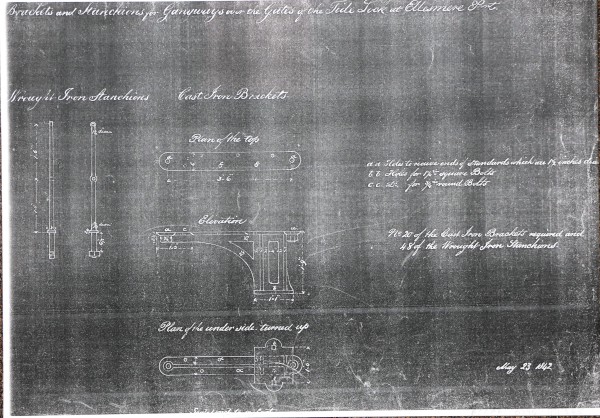 Brackets and Stanchions for Gangways over the Gates of the Tide Lock at Ellesmere Port
Wrought Iron Stanchions
Cast Iron Brackets
Plan of the top
3.6
a.a Holes to receive ends of Standards which are 1½ inches dia
b.b Holes for square Bolts
c.c for round Bolts
Elevation
No. 20 of the Cast Iron Brackets required and
48 of the Wrought Iron Stanchions.
Plan of the under side turned up
May 23 1842